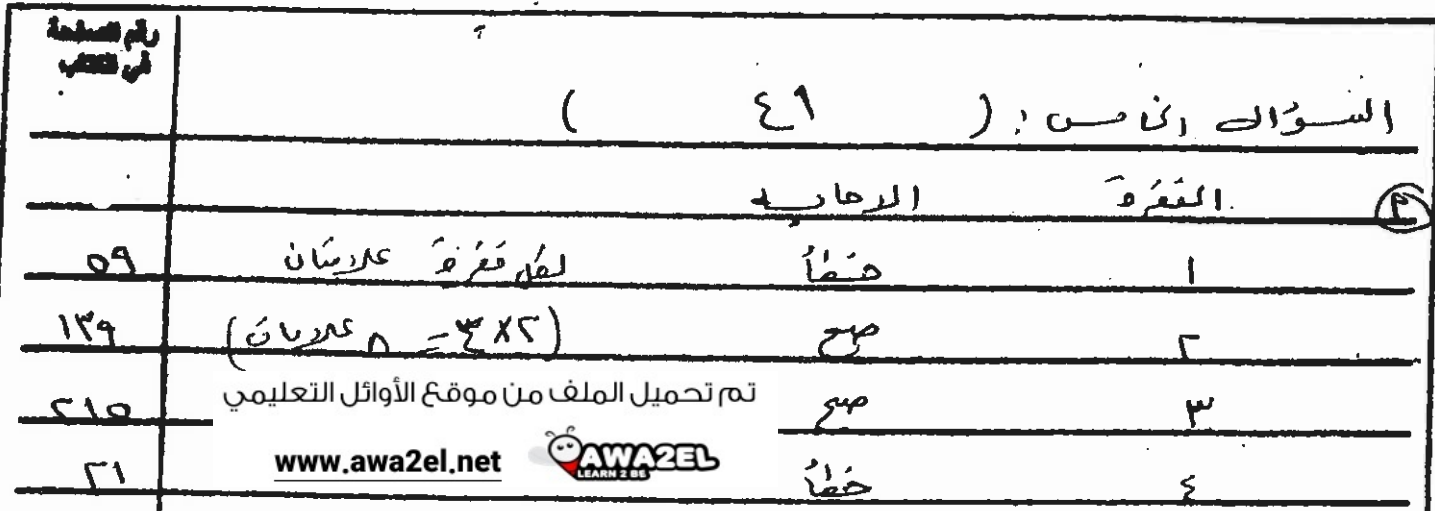 رقم الصفحة في الكتاب
السؤال الخامس : ( ٤٩ )
٢ الفقرة الاجابه
١ خطأ لكل فقرة علامتان ٥٩
٢ صح (٢×٤ = ٨ علامات) ١٣٩
٣ صح ٢١٥
٤ خطأ ٢١
تم تحميل الملف من موقع الأوائل التعليمي
www.awa2el.net AWA2EL
LEARN 2 BE